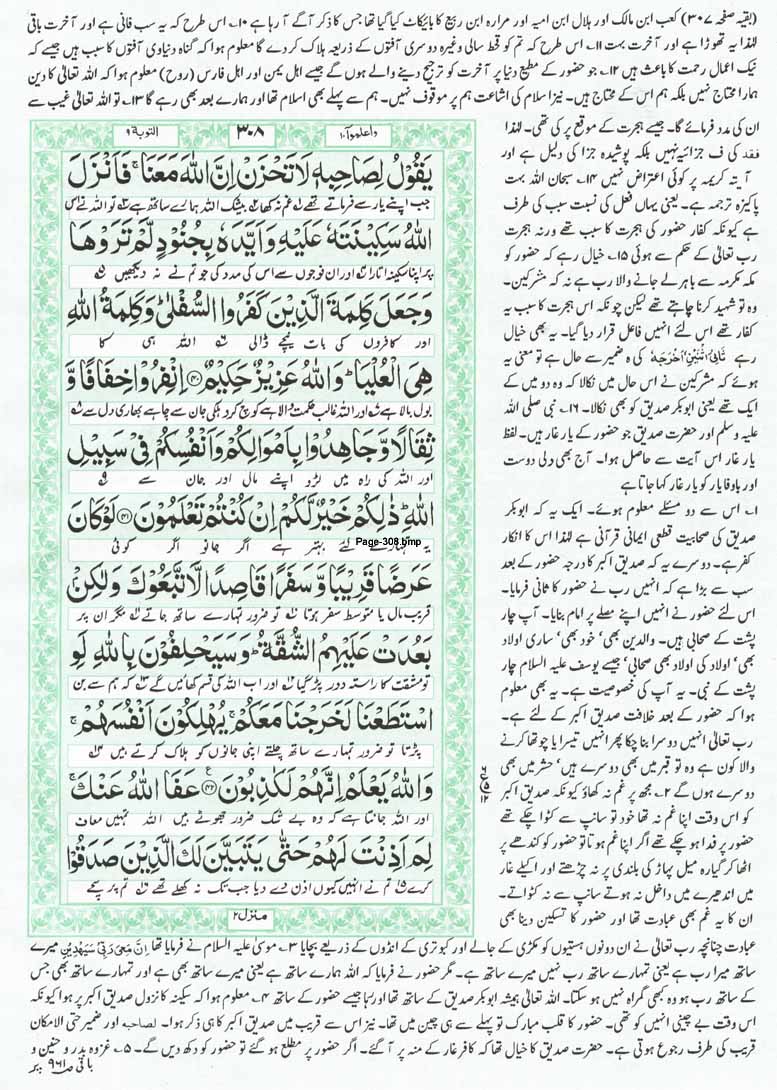 (بقیہ صفحہ ۳۰۷) کعب ابن مالک اور ہلال ابن امیہ اور مرارہ ابن ربیع کا بائیکاٹ کیا گیا تھا جس کا ذکر آگے آ رہا ہے ۱۰۔ اس طرح کہ یہ سب فانی ہے اور آخرت باقی
لہٰذا یہ تھوڑا ہے اور آخرت بہت ۱۱۔ اس طرح کہ تم کو قحط سالی وغیرہ دوسری آفتوں کے ذریعہ ہلاک کر دے گا معلوم ہوا کہ گناہ دنیاوی آفتوں کا سبب ہیں جیسے کہ
نیک اعمال رحمت کا باعث ہیں ۱۲۔ جو حضور کے مطیع دنیا پر آخرت کو ترجیح دینے والے ہوں گے جیسے اہل یمن اور اہل فارس (روح) معلوم ہوا کہ اللہ تعالٰی کا دین
ہمارا محتاج نہیں بلکہ ہم اس کے محتاج ہیں۔ نیز اسلام کی اشاعت ہم پر موقوف نہیں۔ ہم سے پہلے بھی اسلام تھا اور ہمارے بعد بھی رہے گا ۱۳۔ تو اللہ تعالٰی غیب سے
ان کی مدد فرمائے گا۔ جیسے ہجرت کے موقع پر کی تھی۔ لہٰذا
فقد کی ف جزائیہ نہیں بلکہ پوشیدہ جزا کی دلیل ہے اور
آیتہ کریمہ پر کوئی اعتراض نہیں ۱۴۔ سبحان اللہ بہت
پاکیزہ ترجمہ ہے۔ یعنی یہاں فعل کی نسبت سبب کی طرف
ہے کیونکہ کفار حضور کی ہجرت کا سبب تھے ورنہ ہجرت
رب تعالٰی کے حکم سے ہوئی ۱۵۔ خیال رہے کہ حضور کو
مکہ مکرمہ سے باہر لے جانے والا رب ہے نہ کہ مشرکین۔
وہ تو شہید کرنا چاہتے تھے لیکن چونکہ اس ہجرت کا سبب یہ
کفار تھے اس لئے انہیں فاعل قرار دیا گیا۔ یہ بھی خیال
رہے ثَانِیَ اثْنَیْنِ اَخْرَجَہٗ کی ہ ضمیر سے حال ہے تو معنی یہ
ہوئے کہ مشرکین نے اس حال میں نکالا کہ وہ دو میں کے
ایک تھے یعنی ابوبکر صدیق کو بھی نکالا۔ ۱۶۔ نبی صلی اللہ
علیہ وسلم اور حضرت صدیق جو حضور کے یار غار ہیں۔ لفظ
یار غار اس آیت سے حاصل ہوا۔ آج بھی دلی دوست
اور باوفا یار کو یار غار کہا جاتا ہے
۱۔ اس سے دو مسئلے معلوم ہوئے۔ ایک یہ کہ ابوبکر
صدیق کی صحابیت قطعی ایمانی قرآنی ہے لہٰذا اس کا انکار
کفر ہے۔ دوسرے یہ کہ صدیق اکبر کا درجہ حضور کے بعد
سب سے بڑا ہے کہ انہیں رب نے حضور کا ثانی فرمایا۔
اس لئے حضور نے انہیں اپنے مصلے پر امام بنایا۔ آپ چار
پشت کے صحابی ہیں۔ والدین بھی' خود بھی' ساری اولاد
بھی' اولاد کی اولاد بھی صحابی' جیسے یوسف علیہ السلام چار
پشت کے نبی۔ یہ آپ کی خصوصیت ہے۔ یہ بھی معلوم
ہوا کہ حضور کے بعد خلافت صدیق اکبر کے لئے ہے۔
رب تعالٰی انہیں دوسرا بنا چکا پھر انہیں تیسرا یا چوتھا کرنے
والا کون ہے وہ تو قبر میں بھی دوسرے ہیں' حشر میں بھی
دوسرے ہوں گے ۲۔ مجھ پر غم نہ کھاؤ کیونکہ صدیق اکبر
کو اس وقت اپنا غم نہ تھا خود تو سانپ سے کٹوا چکے تھے
حضور پر فدا ہو چکے تھے اگر اپنا غم ہوتا تو حضور کو کندھے پر
اٹھا کر گیارہ میل پہاڑ کی بلندی پر نہ چڑھتے اور اکیلے غار
میں اندھیرے میں داخل نہ ہوتے سانپ سے نہ کٹواتے۔
ان کا یہ غم بھی عبادت تھا اور حضور کا تسکین دینا بھی
عبادت چنانچہ رب تعالٰی نے ان دونوں ہستیوں کو مکڑی کے جالے اور کبوتری کے انڈوں کے ذریعے بچایا ۳۔ موسیٰ علیہ السلام نے فرمایا تھا اِنَّ مَعِیَ رَبِّیْ سَیَھْدِیْنِ میرے
ساتھ میرا رب ہے یعنی تمہارے ساتھ رب نہیں میرے ساتھ ہے۔ مگر حضور نے فرمایا کہ اللہ ہمارے ساتھ ہے یعنی میرے ساتھ بھی ہے اور تمہارے ساتھ بھی جس
کے ساتھ رب ہو وہ کبھی گمراہ نہیں ہو سکتا۔ اللہ تعالٰی ہمیشہ ابوبکر صدیق کے ساتھ تھا اور رہا جیسے حضور کے ساتھ ۴۔ معلوم ہوا کہ سکینہ کا نزول صدیق اکبر پر ہوا کیونکہ
اس وقت بے چینی انہیں کو تھی۔ حضور کا قلب مبارک تو پہلے سے ہی چین میں تھا۔ نیز اس سے قریب میں صدیق اکبر کا ہی ذکر ہوا۔ لصاحبہ اور ضمیر حتی الامکان
قریب کی طرف رجوع ہوتی ہے۔ حضرت صدیق کا خیال تھا کہ کافر غار کے منہ پر آ گئے۔ اگر حضور پر مطلع ہو گئے تو حضور کو دکھ دیں گے۔ ۵۔ غزوہ بدر و حنین و
باقی ص ۹۶۱ پر
واعلموا ۱۰
۳۰۸
التوبۃ ۹
یَقُوْلُ لِصَاحِبِهٖ لَا تَحْزَنْ اِنَّ اللّٰهَ مَعَنَا ۚ فَاَنْزَلَ
جب اپنے یار سے فرماتے تھے غم نہ کھا بیشک اللہ ہمارے ساتھ ہے تو اللہ نے اس
اللّٰهُ سَكِیْنَتَهٗ عَلَیْهِ وَ اَیَّدَهٗ بِجُنُوْدٍ لَّمْ تَرَوْهَا
پر اپنا سکینہ اتارا اور ان فوجوں سے اس کی مدد کی جو تم نے نہ دیکھیں
وَ جَعَلَ كَلِمَةَ الَّذِیْنَ كَفَرُوا السُّفْلٰى ؕ وَ كَلِمَةُ اللّٰهِ
اور کافروں کی بات نیچے ڈالی اللہ ہی کا
هِیَ الْعُلْیَا ؕ وَ اللّٰهُ عَزِیْزٌ حَكِیْمٌ ﴿۴۰﴾ اِنْفِرُوْا خِفَافًا وَّ
بول بالا ہے اور اللہ غالب حکمت والا ہے کوچ کرو ہلکی جان سے چاہے بھاری دل سے
ثِقَالًا وَّ جَاهِدُوْا بِاَمْوَالِكُمْ وَ اَنْفُسِكُمْ فِیْ سَبِیْلِ
اور اللہ کی راہ میں لڑو اپنے مال اور جان سے
اللّٰهِ ؕ ذٰلِكُمْ خَیْرٌ لَّكُمْ اِنْ كُنْتُمْ تَعْلَمُوْنَ ﴿۴۱﴾ لَوْ كَانَ
Page-308.bmp
یہ تمہارے لئے بہتر ہے اگر جانو اگر کوئی
عَرَضًا قَرِیْبًا وَّ سَفَرًا قَاصِدًا لَّاتَّبَعُوْكَ وَ لٰكِنْۢ
قریب مال یا متوسط سفر ہوتا تو ضرور تمہارے ساتھ جاتے مگر ان پر
بَعُدَتْ عَلَیْهِمُ الشُّقَّةُ ؕ وَ سَیَحْلِفُوْنَ بِاللّٰهِ لَوِ
تو مشقت کا راستہ دور پڑ گیا اور اب اللہ کی قسم کھائیں گے کہ ہم سے بن
اسْتَطَعْنَا لَخَرَجْنَا مَعَكُمْ ۚ یُهْلِكُوْنَ اَنْفُسَهُمْ ۚ
پڑتا تو ضرور تمہارے ساتھ چلتے اپنی جانوں کو ہلاک کرتے ہیں
وَ اللّٰهُ یَعْلَمُ اِنَّهُمْ لَكٰذِبُوْنَ ﴿۴۲﴾ عَفَا اللّٰهُ عَنْكَ ۚ
اور اللہ جانتا ہے کہ وہ بے شک ضرور جھوٹے ہیں اللہ تمہیں معاف
لِمَ اَذِنْتَ لَهُمْ حَتّٰى یَتَبَیَّنَ لَكَ الَّذِیْنَ صَدَقُوْا
کرے تم نے انہیں کیوں اذن دے دیا جب تک نہ کھلے تھے تم پر سچے
منزل ۲